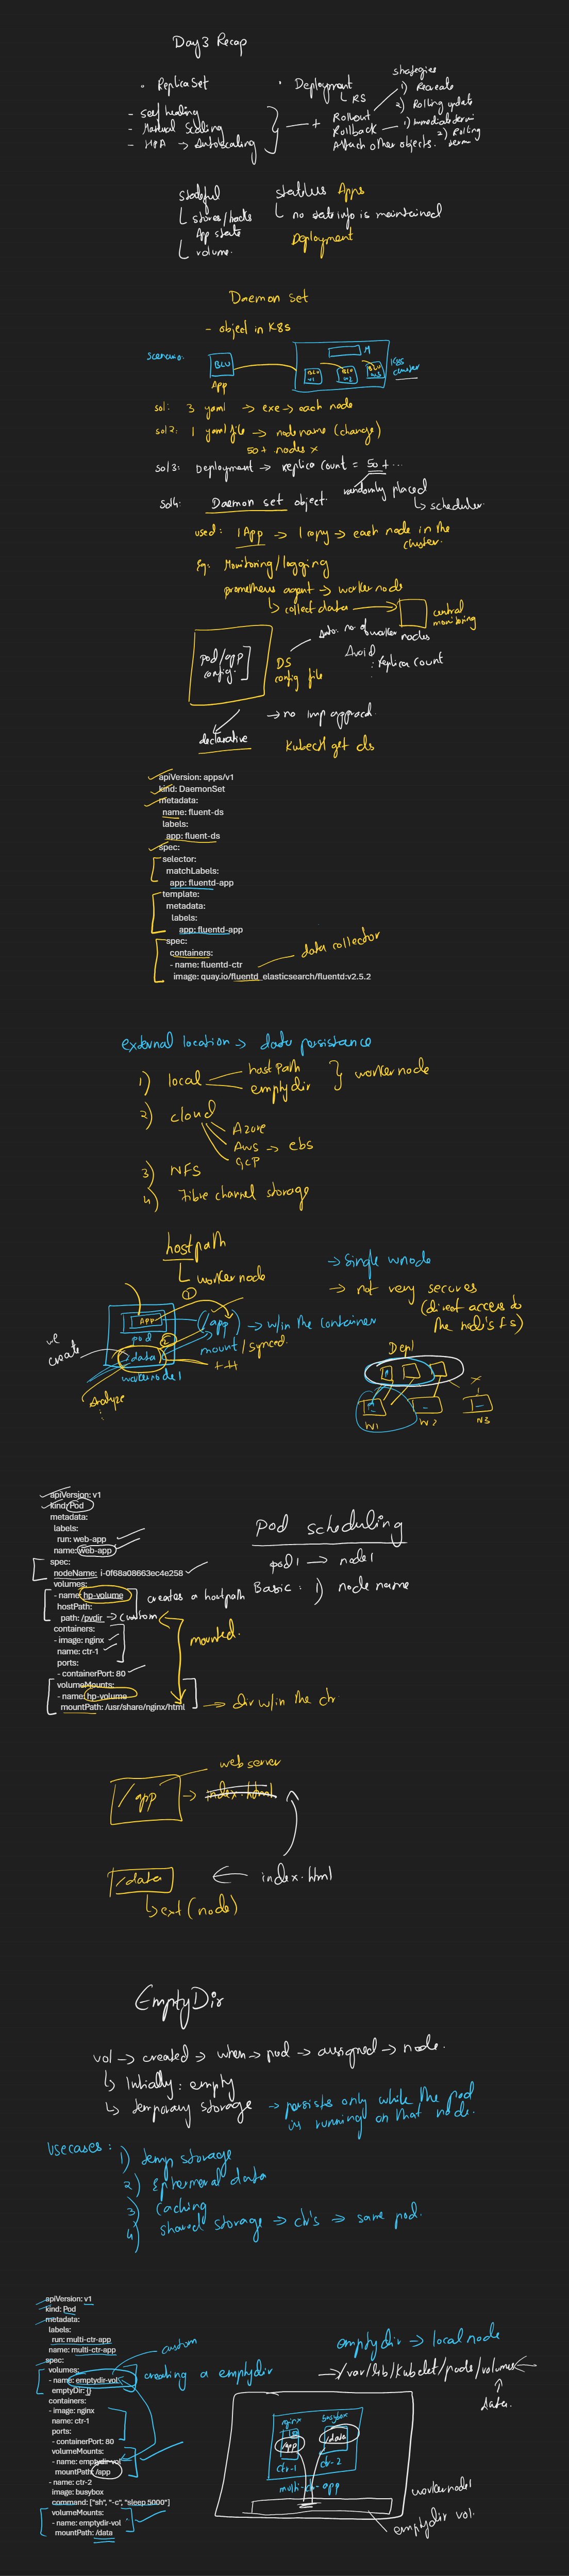 Day 3 Recap
• ReplicaSet
- self healing
- Manual Scaling
- HPA → Autoscaling
+
• Deployment
RS
Rollout
Rollback
Attach other objects.
strategies
1) Recreate
2) Rolling update
1) Immediate
2) Rolling
stateful
stores/tracks
App state
volume.
Apps
no state info is maintained
Deployment
Daemon set
- object in K8s
scenario:
App
M
K8s
cluster
sol: 3 yaml → exe → each node
sol 2: 1 yaml file → node name (change)
50+ nodes x
sol 3: Deployment → replica count = 50 + ...
randomly placed
scheduler.
sol4: Daemon set object.
used: 1 App → 1 copy → each node in the
cluster.
Eg: Monitoring/logging
prometheus agent → worker node
collect data →
central
monitoring
pod/app
config.
DS
config file
auto: no of worker nodes
Avoid
: Replica count
declarative
→ no imp approach.
Kubectl get ds
apiVersion: apps/v1
kind: DaemonSet
metadata:
name: fluent-ds
labels:
app: fluent-ds
spec:
selector:
matchLabels:
app: fluentd-app
template:
metadata:
labels:
app: fluentd-app
spec:
containers:
- name: fluentd-ctr
image: quay.io/fluentd_elasticsearch/fluentd:v2.5.2
data collector
external location → data persistance
1) local
hostPath
emptydir
} workernode
2) cloud
Azure
Aws → ebs
GCP
3) NFS
4) Fibre channel storage
hostpath
worker node
→ single wnode
→ not very secures
(direct access to
the node's FS)
APP
pod
data
workernode 1
create
Analyze
1
2
(/app) → w/in the container
mount / synced.
Depl
N1
N2
N3
x
apiVersion: v1
kind: Pod
metadata:
labels:
run: web-app
name: web-app
spec:
nodeName: i-0f68a08663ec4e258
volumes:
- name: hp-volume
hostPath:
path: /pvdir
containers:
- image: nginx
name: ctr-1
ports:
- containerPort: 80
volumeMounts:
- name: hp-volume
mountPath: /usr/share/nginx/html
creates a hostpath
→ custom
mounted.
→ dir w/in the ctr
Pod scheduling
pod1 → node1
Basic: 1) node name
web server
/app → index.html
/data ← index.html
ext (node)
EmptyDir
vol → created → when → pod → assigned → node.
Initially: empty
temporary storage → persists only while the pod
is running on that node.
Usecases: 1) temp storage
2) Ephemeral data
3) caching
4) shared storage → ctr's → same pod.
apiVersion: v1
kind: Pod
metadata:
labels:
run: multi-ctr-app
name: multi-ctr-app
spec:
volumes:
- name: emptydir-vol
emptyDir: {}
containers:
- image: nginx
name: ctr-1
ports:
- containerPort: 80
volumeMounts:
- name: emptydir-vol
mountPath: /app
- name: ctr-2
image: busybox
command: ["sh", "-c", "sleep 5000"]
volumeMounts:
- name: emptydir-vol
mountPath: /data
custom
creating a emptydir
emptydir → local node
→ /var/lib/kubelet/pods/volumes
data.
nginx
busybox
/app
/data
ctr-1
ctr-2
multi-ctr-app
workernode1
emptydir vol.